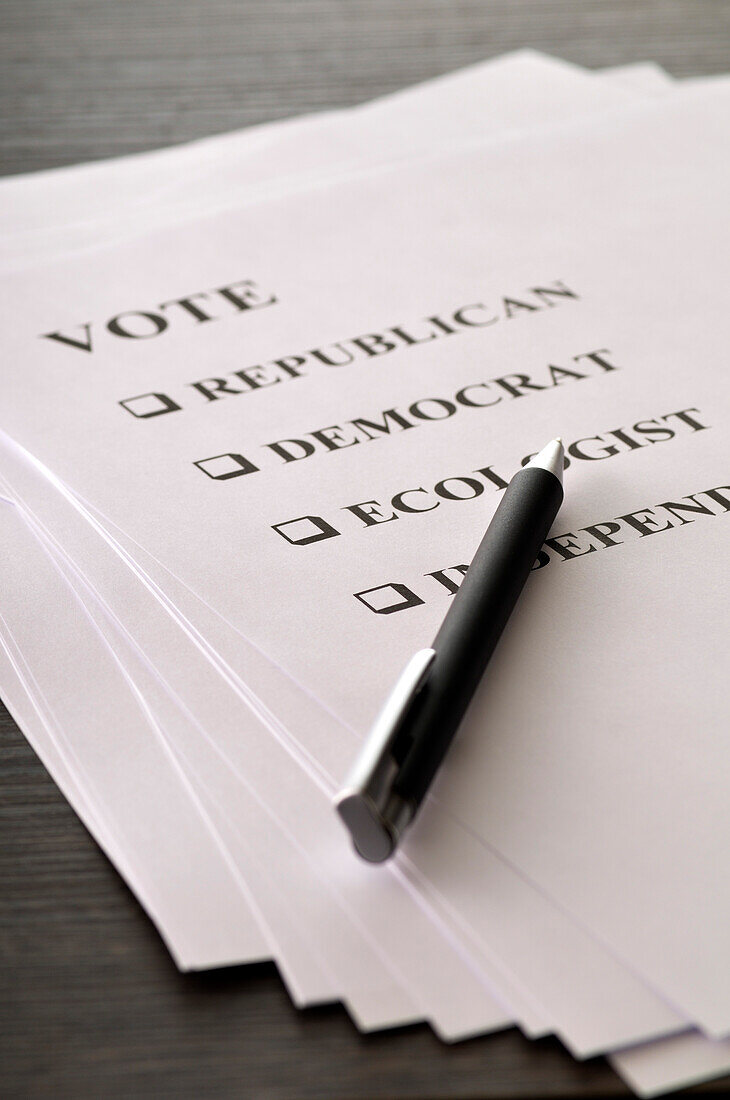 VOTE
REPUBLICAN
DEMOCRAT
ECOLOGIST